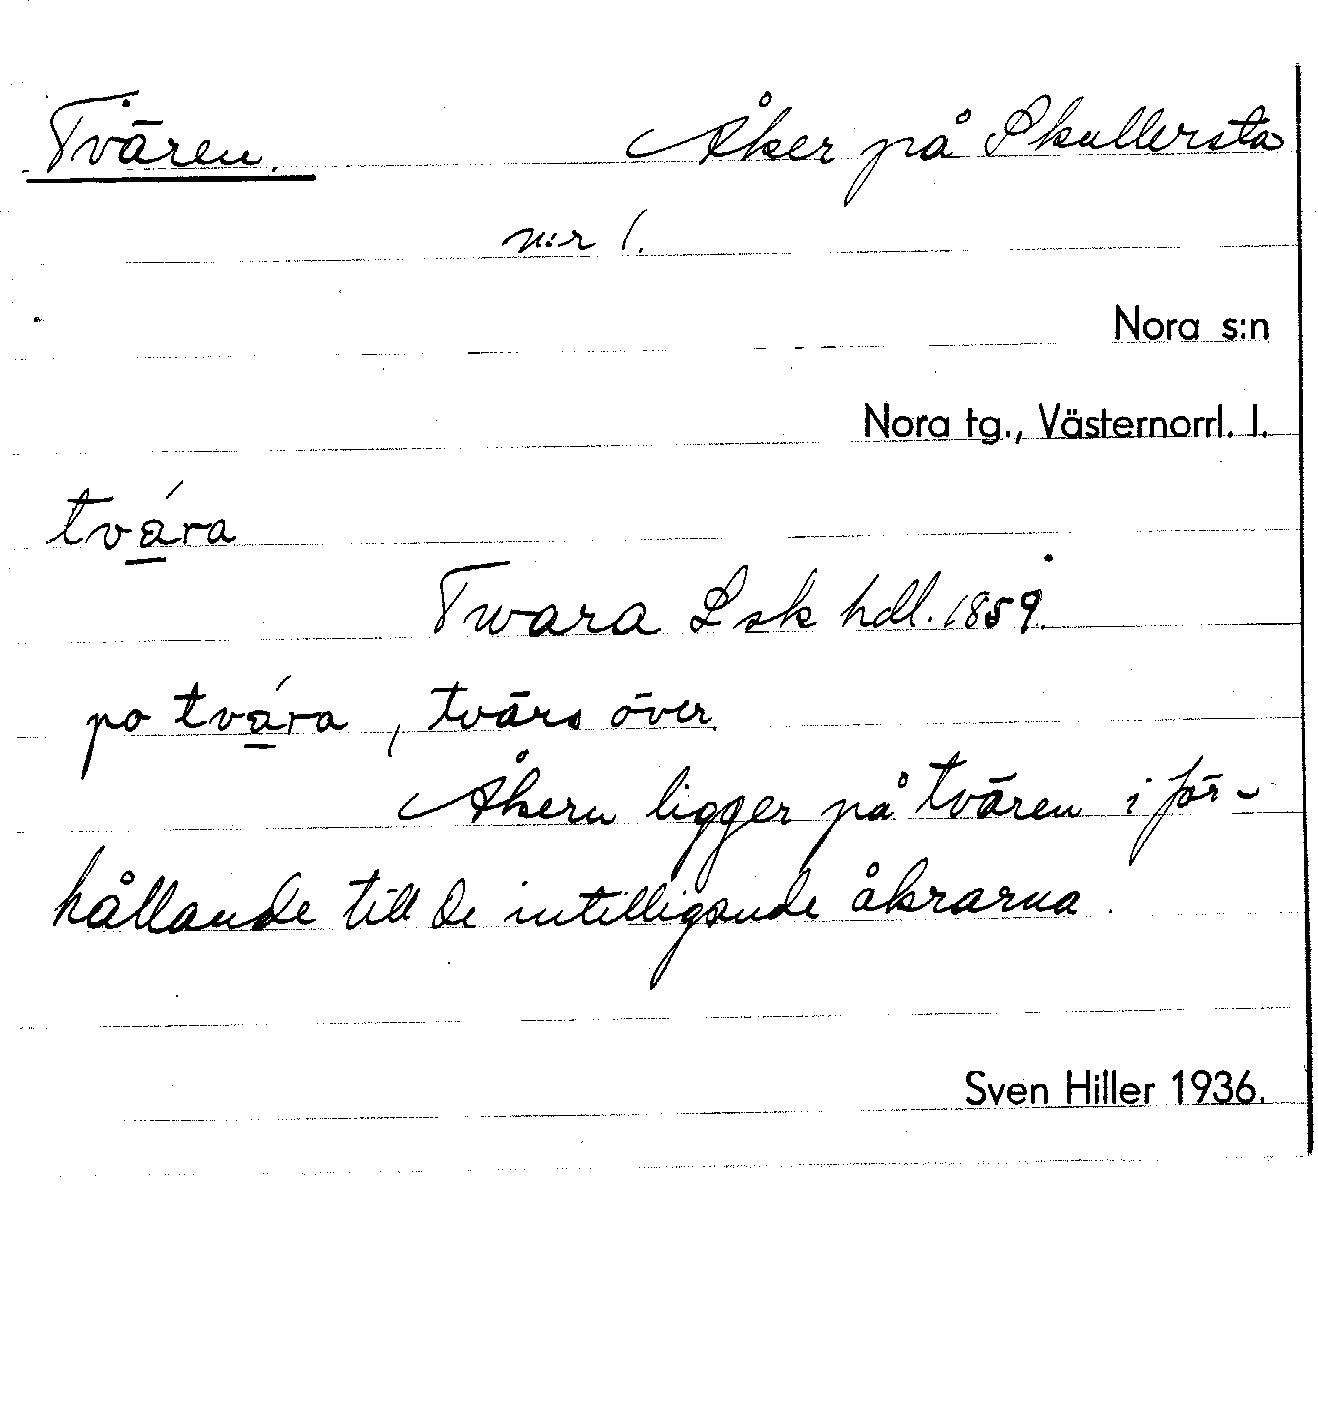 Tvären. Åker på Skullersta
n:r 1.
Nora s:n
Nora tg., Västernorrl. l.
tvára
Twara Lsk hdl. 1859.
po tvára, tvärs över.
Åkern ligger på tvären i för-
hållande till de intilligande åkrarna.
Sven Hiller 1936.